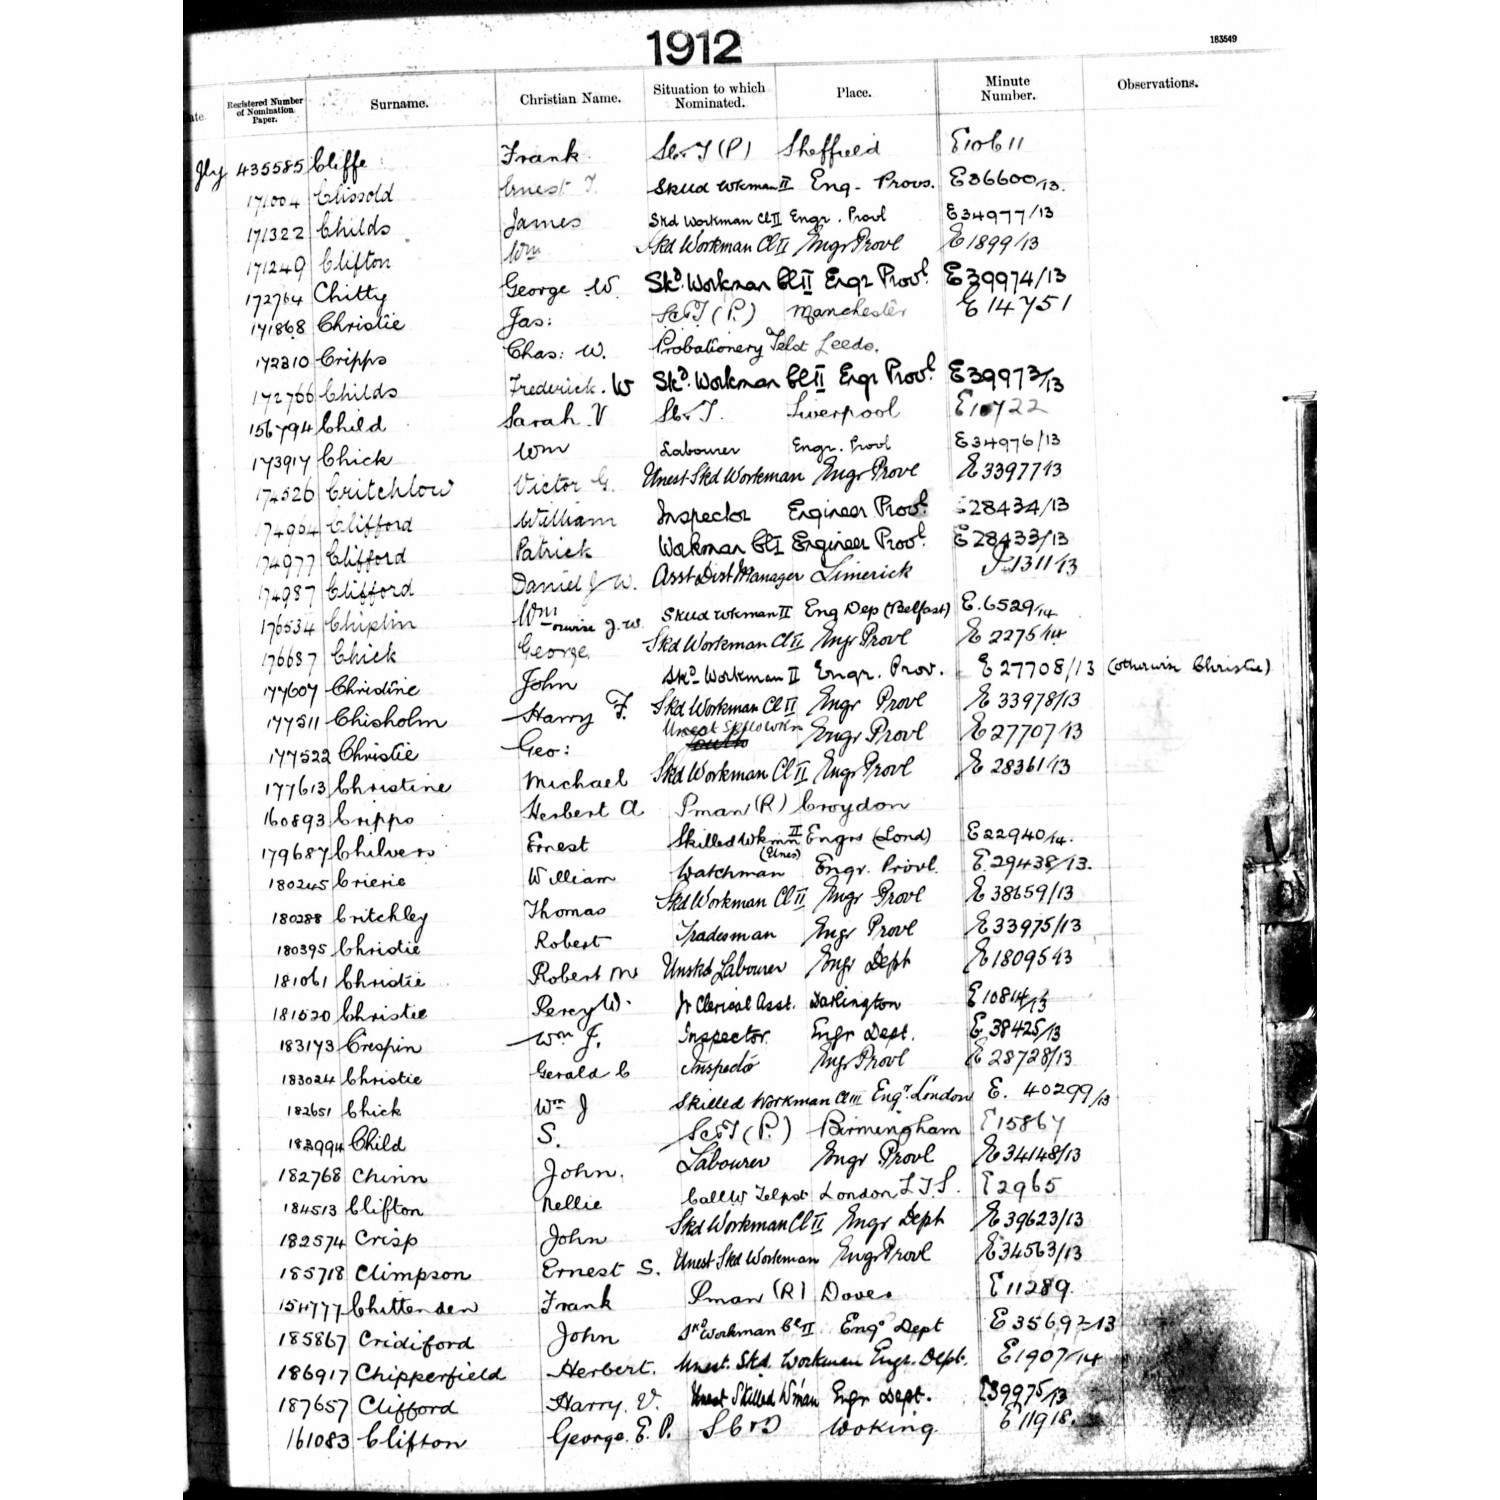 1912
183549
Registered Number of Nomination Paper. Surname. Christian Name. Situation to which Nominated. Place. Minute Number. Observations.
Jly 435585 Cliffe Frank Sc&T (P) Sheffield E10611
171004 Clissold Ernest T. Skud Wkman II Eng. Provs. E36600/13.
171322 Childs James Skd Workman Cl II Engr. Provl E34977/13
171249 Clifton Wm Skd Workman Cl II Engr Provl E1899/13
172764 Chitty George W. Skd. Workman Cl II Engr Provl. E39974/13
171868 Christie Jas: SC&T (P.) Manchester E14751
172310 Cripps Chas: W. Probationery Telst Leeds.
172766 Childs Frederick. W Skd. Workman Cl II Engr Provl. E39973/13
156794 Child Sarah V Sc&T. Liverpool
173917 Chick Wm Labourer Engr. Provl E34976/13
174526 Critchlow Victor G. Unest Skd Workman Engr Provl E33977/13
174964 Clifford William Inspector Engineer Provl. E28434/13
174977 Clifford Patrick Workman Cl I Engineer Provl. E28433/13
174987 Clifford Daniel J W. Asst Dist Manager Limerick I1311/13
176534 Chiplin Wm orwise J. W. Skud Wkman II Eng Dep (Belfast) E.6529/14
176687 Chick George Skd Workman Cl II Engr Provl E2275/14
177607 Christine John Skd Workman II Engr. Prov. E27708/13 (otherwise Christie)
177511 Chisholm Harry F. Skd Workman Cl II Engr Provl E33978/13
177522 Christie Geo: Unest Skilld Wkm Engr Provl E27707/13
177613 Christine Michael Skd Workman Cl II Engr Provl E28361/13
160893 Cripps Herbert A Pman (R) Croydon
179687 Chilvers Ernest Skilled Wkmn II (Unes) Engrs (Lond) E22940/14.
180245 Crierie William Watchman Engr. Provl. E.29438/13.
180288 Critchley Thomas Skd Workman Cl II Engr Provl E38659/13
180395 Christie Robert Tradesman Engr Provl E33975/13
181061 Christie Robert M Unskd Labourer Engr Dept E18095/13
181520 Christie Percy W. Jr Clerical Asst. Darlington E10814/13
183173 Crespin Wm J. Inspector Engr Dept. E.38425/13
183024 Christie Gerald C Inspector Engr Provl E28728/13
182651 Chick Wm J Skilled Workman Cl III Engr. London E. 40299/13
183994 Child S. SC&T (P.) Birmingham E15867
182768 Chinn John. Labourer Engr Provl E34148/13
184513 Clifton Nellie Call W Telpst London L.T.S. E2965
182574 Crisp John Skd Workman Cl II Engr Dept E39623/13
185718 Climpson Ernest S. Unest Skd Workman Engr Provl E34563/13
154777 Chittenden Frank Pman (R) Dover E11289
185867 Cridiford John Skd Workman Cl II Engr Dept E35697/13
186917 Chipperfield Herbert. Unest. Skd. Workman Engr. Dept. E1907/14
187657 Clifford Harry. V. Unest Skilled W'man Engr Dept. E39975/13
161083 Clifton George. E. P. SC&D Woking E11918.